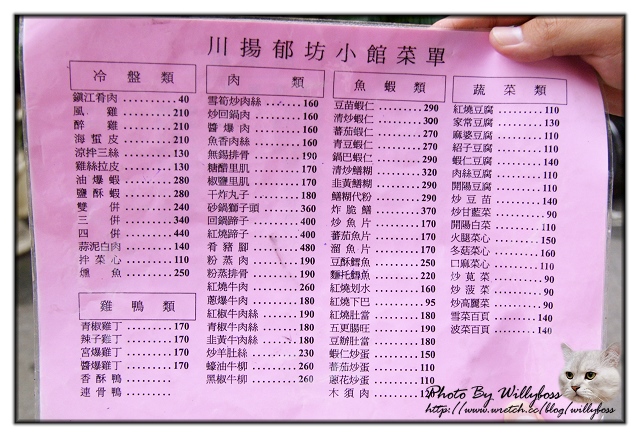 川揚郁坊小館菜單
冷盤類
鎮江肴肉 .......... 40
風雞 .......... 210
醉雞 .......... 210
海蜇皮 .......... 210
涼拌三絲 .......... 130
雞絲拉皮 .......... 130
油爆蝦 .......... 280
鹽酥蝦 .......... 280
雙併 .......... 240
三併 .......... 340
四併 .......... 440
蒜泥白肉 .......... 140
拌菜心 .......... 110
燻魚 .......... 250
雞鴨類
青椒雞丁 .......... 170
辣子雞丁 .......... 170
宮爆雞丁 .......... 170
醬爆雞丁 .......... 170
香酥鴨 ..........
連骨鴨 ..........
肉類
雪筍炒肉絲 ...... 160
炒回鍋肉 .......... 160
醬爆肉 .......... 160
魚香肉絲 .......... 160
無錫排骨 .......... 190
糖醋里肌 .......... 170
椒鹽里肌 .......... 170
干炸丸子 .......... 180
砂鍋獅子頭 ...... 360
回鍋蹄子 .......... 400
紅燒蹄子 .......... 400
肴豬腳 .......... 480
粉蒸肉 .......... 190
粉蒸排骨 .......... 190
紅燒牛肉 .......... 260
蔥爆牛肉 .......... 180
紅椒牛肉絲 ...... 190
青椒牛肉絲 ...... 180
韭黃牛肉絲 ...... 180
炒羊肚絲 .......... 230
蠔油牛柳 .......... 260
黑椒牛柳 .......... 260
魚蝦類
豆苗蝦仁 .......... 290
清炒蝦仁 .......... 300
蕃茄蝦仁 .......... 270
青豆蝦仁 .......... 270
鍋巴蝦仁 .......... 290
清炒鱔糊 .......... 320
韭黃鱔糊 .......... 290
鱔糊代粉 .......... 290
炸脆鱔 .......... 370
炒魚片 .......... 170
蕃茄魚片 .......... 170
溜魚片 .......... 170
豆酥鱈魚 .......... 250
麵托鱈魚 .......... 220
紅燒划水 .......... 160
紅燒下巴 .......... 95
紅燒肚當 .......... 180
五更腸旺 .......... 190
豆瓣肚當 .......... 180
蝦仁炒蛋 .......... 150
蕃茄炒蛋 .......... 110
蔥花炒蛋 .......... 110
木須肉 ..........
蔬菜類
紅燒豆腐 .......... 110
家常豆腐 .......... 130
麻婆豆腐 .......... 110
紹子豆腐 .......... 110
蝦仁豆腐 .......... 140
肉絲豆腐 .......... 110
開陽豆腐 .......... 110
炒豆苗 .......... 140
炒甘藍菜 .......... 90
開陽白菜 .......... 110
火腿菜心 .......... 150
冬菇菜心 .......... 160
口麻菜心 .......... 110
炒莧菜 .......... 90
炒菠菜 .......... 90
炒高麗菜 .......... 90
雪菜百頁 .......... 140
波菜百頁 .......... 140
Photo By Willyboss
http://www.wretch.cc/blog/willyboss